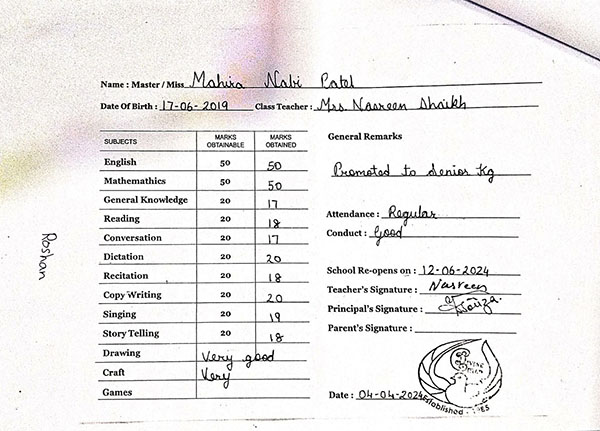 Name : Master / Miss Mahira Nabi Patel
Date Of Birth : 17-06-2019 Class Teacher : Mrs. Nasreen Shaikh
SUBJECTS MARKS OBTAINABLE MARKS OBTAINED
English 50 50
Mathemathics 50 50
General Knowledge 20 17
Reading 20 18
Conversation 20 17
Dictation 20 20
Recitation 20 18
Copy Writing 20 20
Singing 20 19
Story Telling 20 18
Drawing Very good
Craft Very
Games
General Remarks
Promoted to Senior Kg
Attendance : Regular
Conduct : Good
School Re-opens on : 12-06-2024
Teacher's Signature : Nasreen
Principal's Signature :
Parent's Signature :
Date : 04-04-2024
Established
Roshan